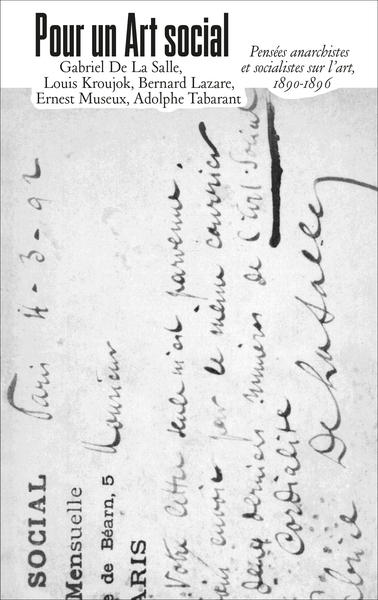 Pour un Art social
Gabriel De La Salle,
Louis Kroujok, Bernard Lazare,
Ernest Museux, Adolphe Tabarant
Pensées anarchistes
et socialistes sur l’art,
1890-1896
SOCIAL
Mensuelle
e de Béarn, 5
ARIS
Paris 4-3-92
Monsieur
Votre lettre seule m'est parvenue.
envoie par le même courrier
deux derniers numéros de l'Art Social
Cordialité
De La Salle